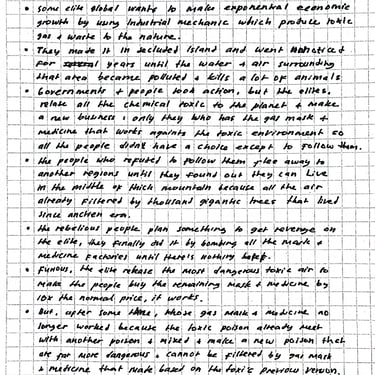 • Some elite global wants to make exponential economic
growth by using Industrial mechanic which produce toxic
gas & waste to the nature.
• They made it in secluded Island and went Unnoticed
for years until the water & air surrounding
that area became polluted & kills a lot of animals
• Governments & people took action, but the elites.
relase all the chemical toxic to the planet & make
a new business: only they who has the gas mask &
medicine that works againts the toxic environment so
all the people didn't have a choice except to follow them.
• The people who refuted to follow them flee away to
another regions until they found out they can Live
In the middle of thick mountain because all the air
already filtered by thousand gigantic trees that lived
since ancien era.
• the rebelious people plan something to get revenge on
the elite, they finally did it by bombing all the mask &
medicine factories until there's nothing
• Furious, the elite release the most dangerous toxic air to
make the people buy the remaining mask & medicine by
10x the normal price, it works.
• But, after some time, those gas mask & medicine no
longer worked because the toxic poison already meet
with another poison & mixed & make a new poison that
are far more dangerous & cannot be filtered by gas mask
& medicine that made based on the toxic's previous version.